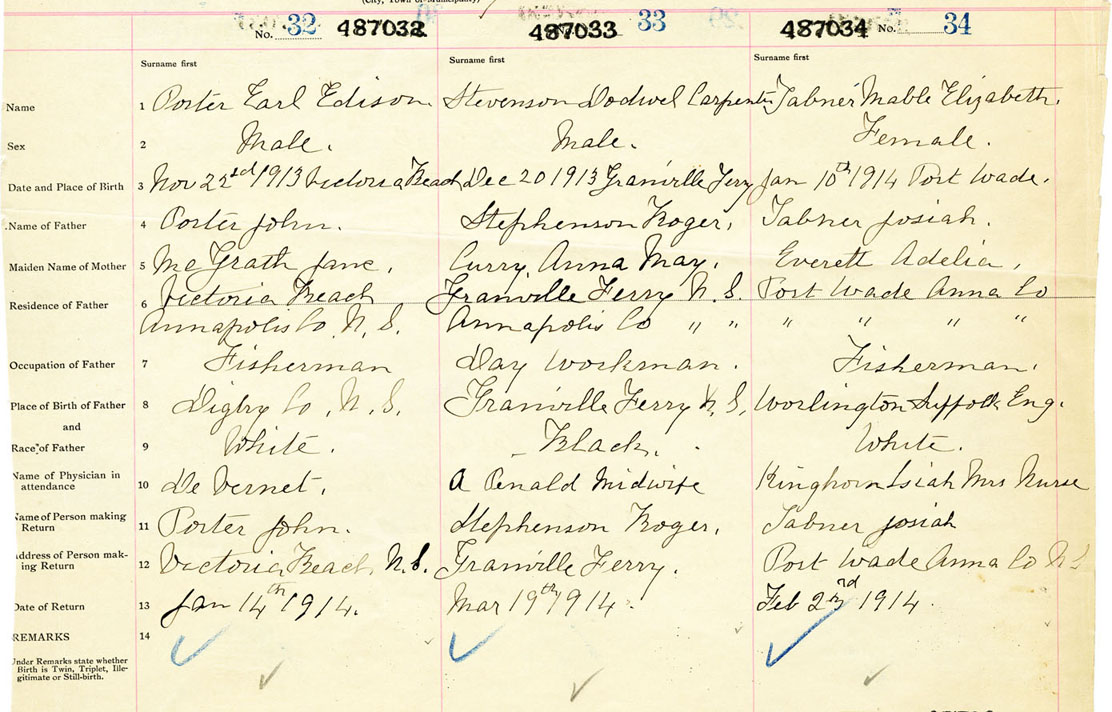 (City, Town or Municipality)
No. 32 487032 487033 33 487034 No. 34
Surname first Surname first Surname first
Name 1 Porter Earl Edison. Stevenson Dodwel Carpenter Tabner Mable Elizabeth.
Sex 2 Male. Male. Female.
Date and Place of Birth 3 Nov 22nd 1913 Victoria Beach Dec 20 1913 Granville Ferry Jan 10th 1914 Port Wade.
Name of Father 4 Porter John. Stephenson Roger, Tabner Josiah.
Maiden Name of Mother 5 McGrath Jane, Curry, Anna May, Everett Adelia,
Residence of Father 6 Victoria Beach Granville Ferry N.S. Port Wade Anna Co
Annapolis Co, N.S. Annapolis Co " " " " " "
Occupation of Father 7 Fisherman Day Workman. Fisherman.
Place of Birth of Father 8 Digby Co, N.S. Granville Ferry N.S, Worlington Suffolk Eng.
and
Race of Father 9 White. Black. White.
Name of Physician in
attendance 10 De Vernet, A Midwife Kinghorn Isiah Mrs Nurse
Name of Person making
Return 11 Porter John. Stephenson Roger, Tabner Josiah
Address of Person mak-
ing Return 12 Victoria Beach, N.S. Granville Ferry. Port Wade Anna Co N S
Date of Return 13 Jan 14th 1914. Mar 19th 1914. Feb 2nd 1914.
REMARKS 14
Under Remarks state whether
Birth is Twin, Triplet, Ille-
gitimate or Still-birth.